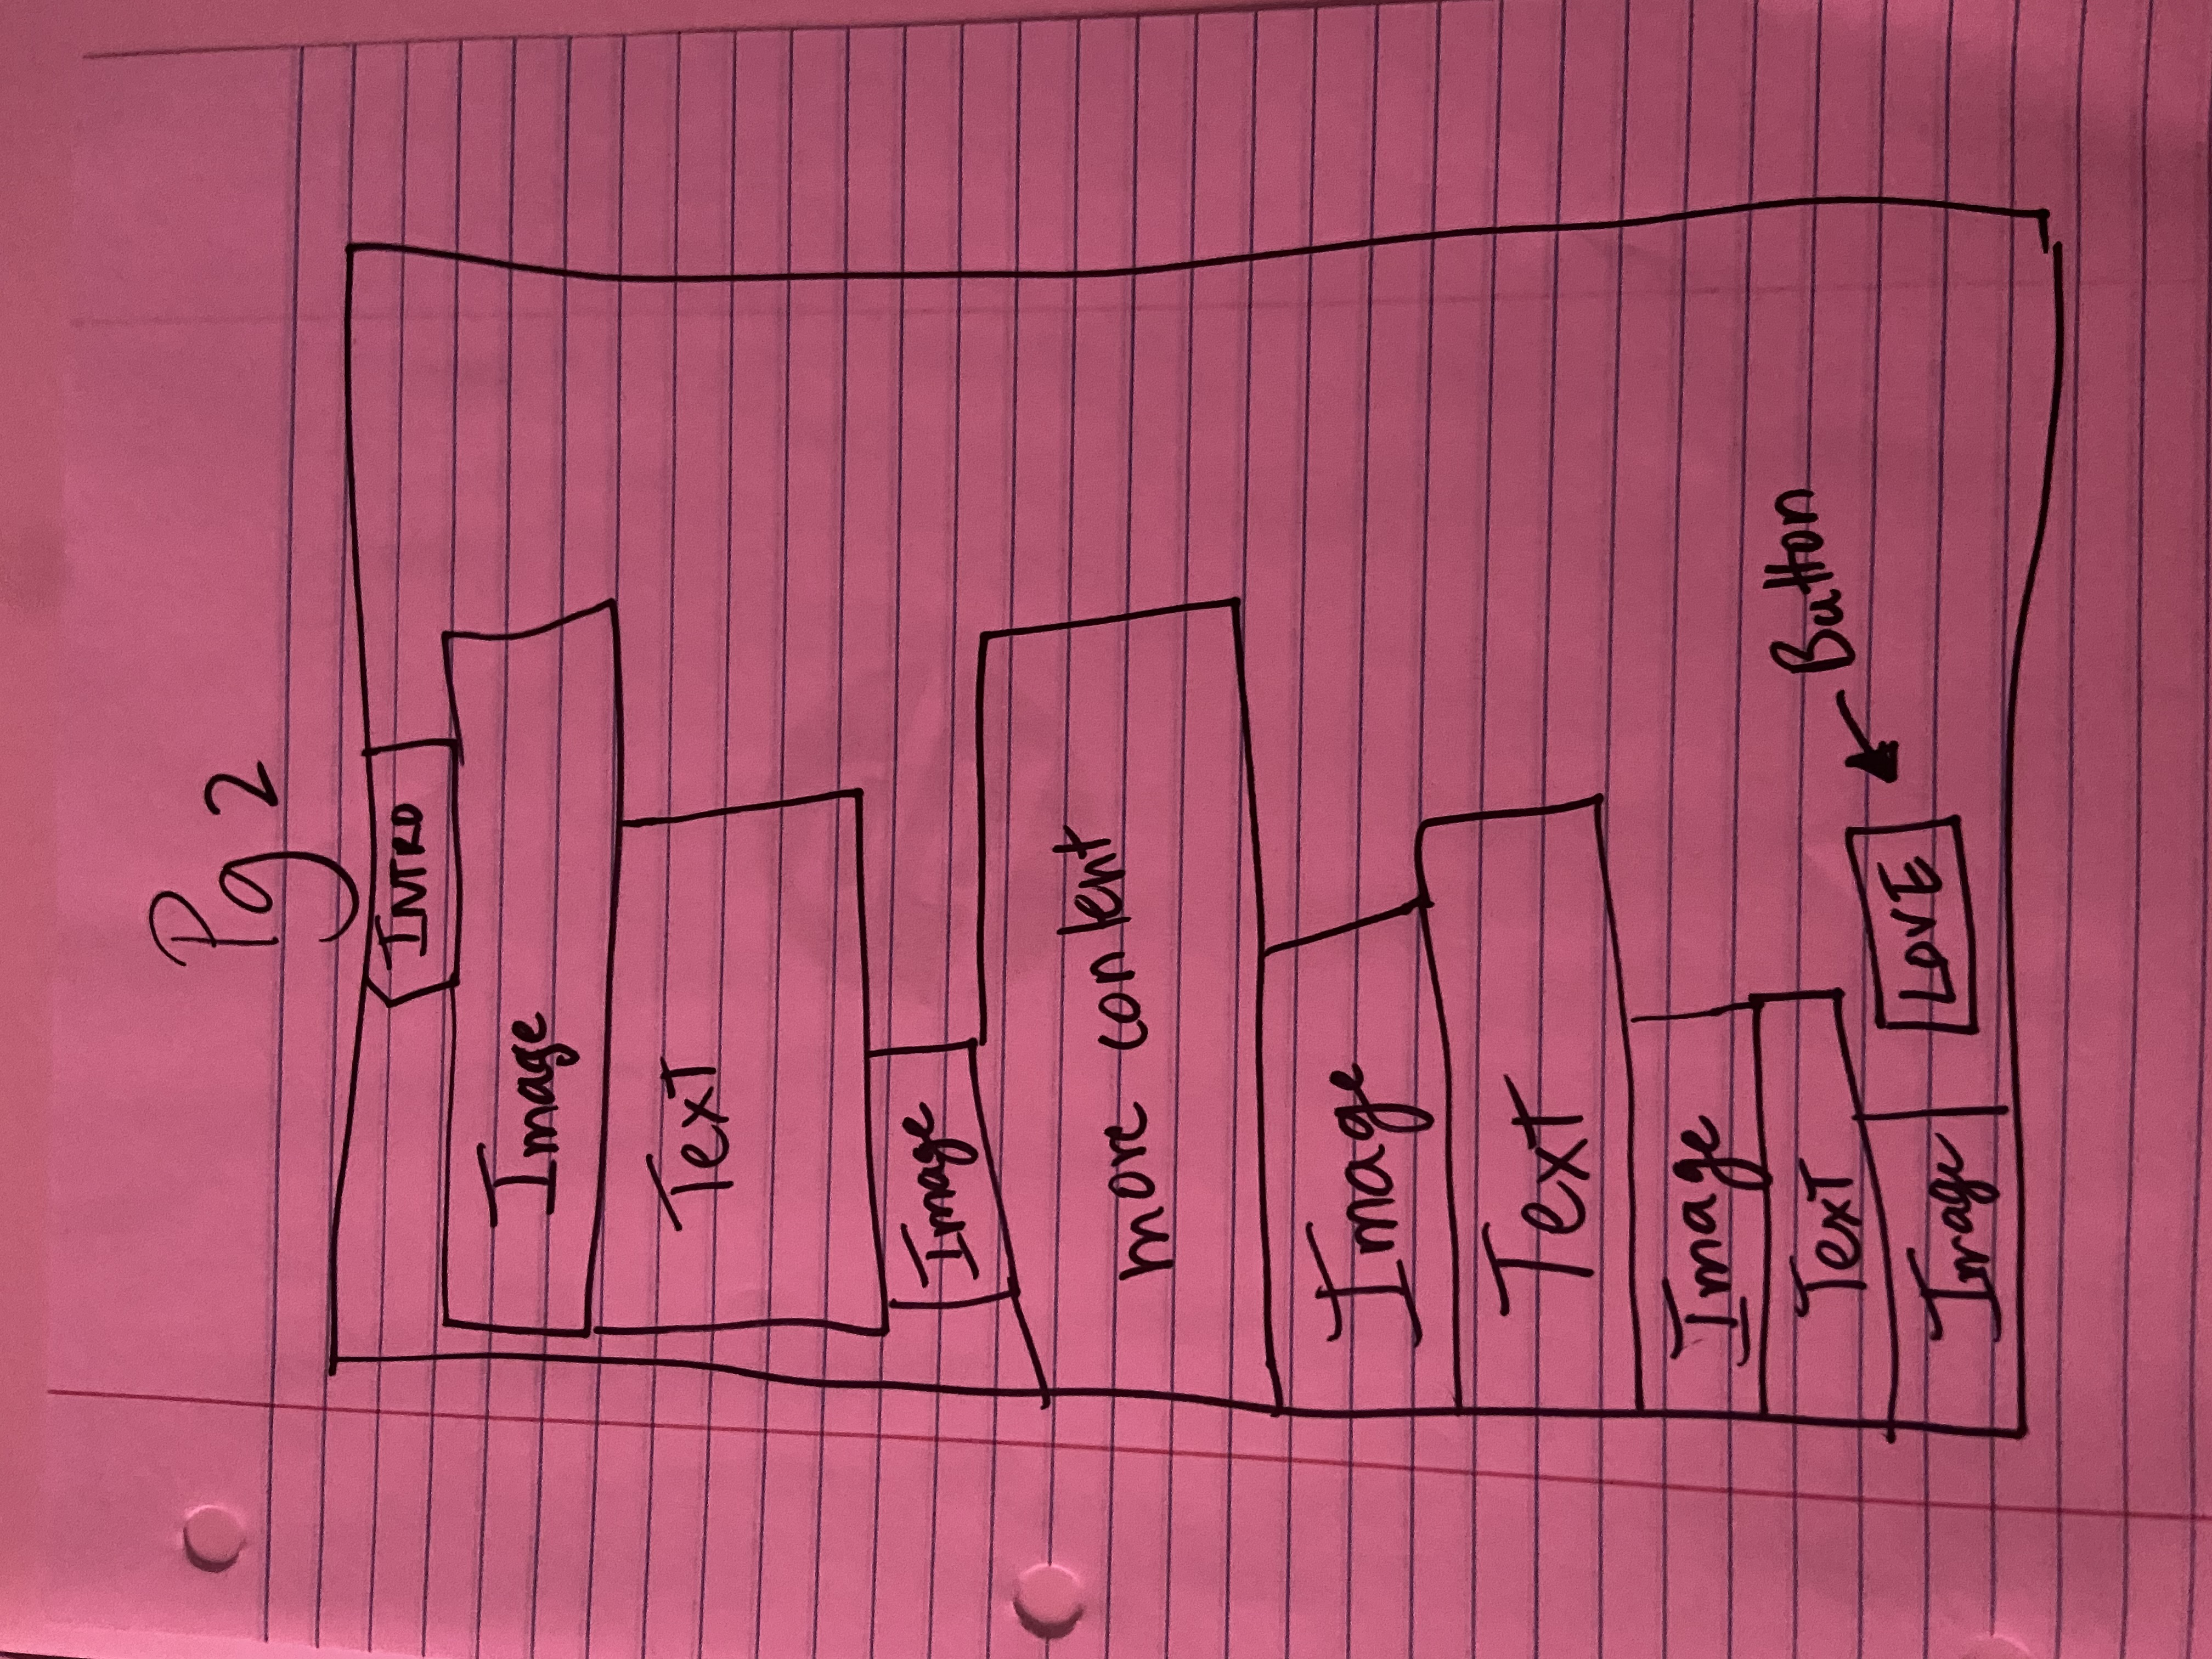 Pg 2
INTRO
Image
Text
Image
more content
Image
Text
Image
Text
Button
Image
LOVE